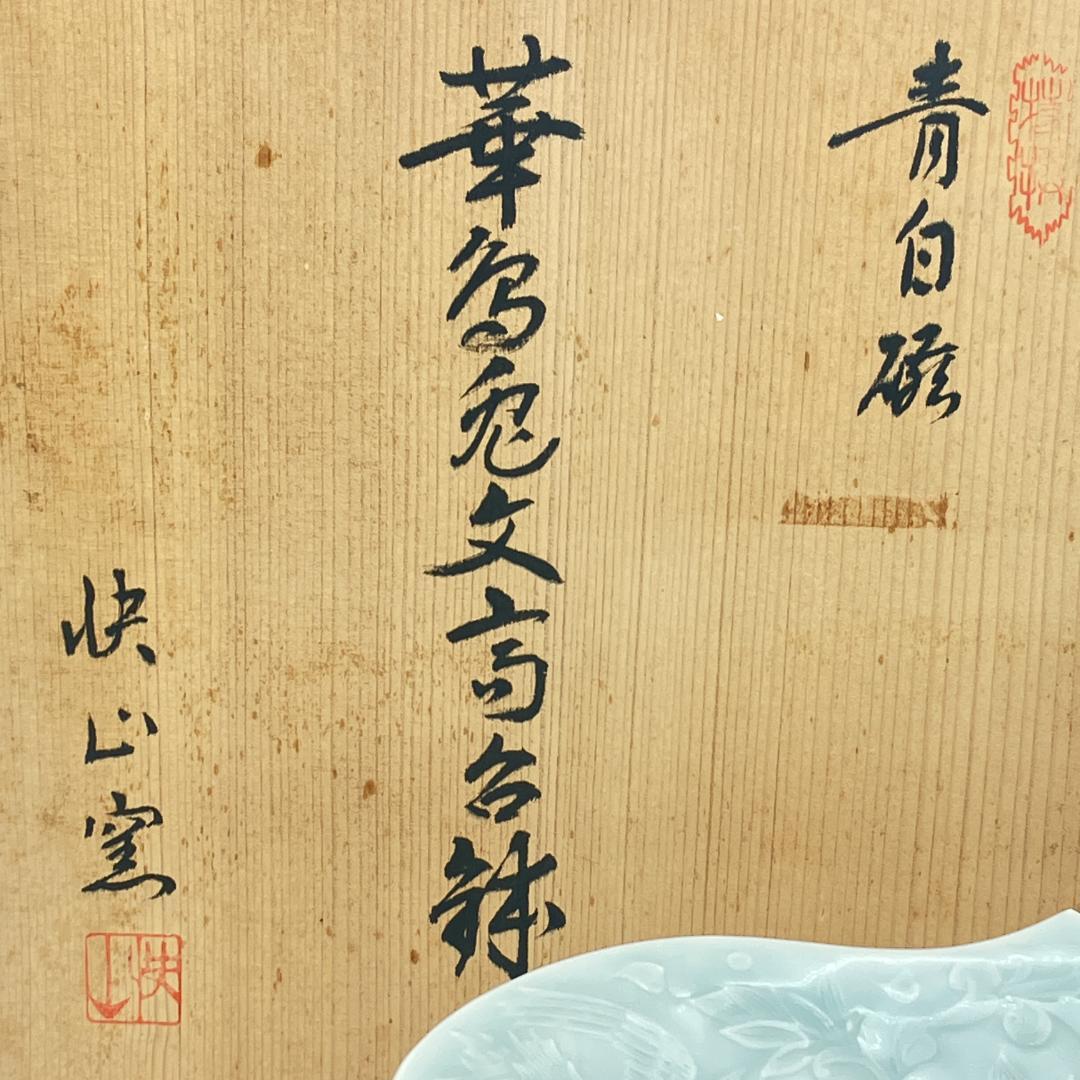 青白磁
華鳥兎文高台鉢
快山窯
快山